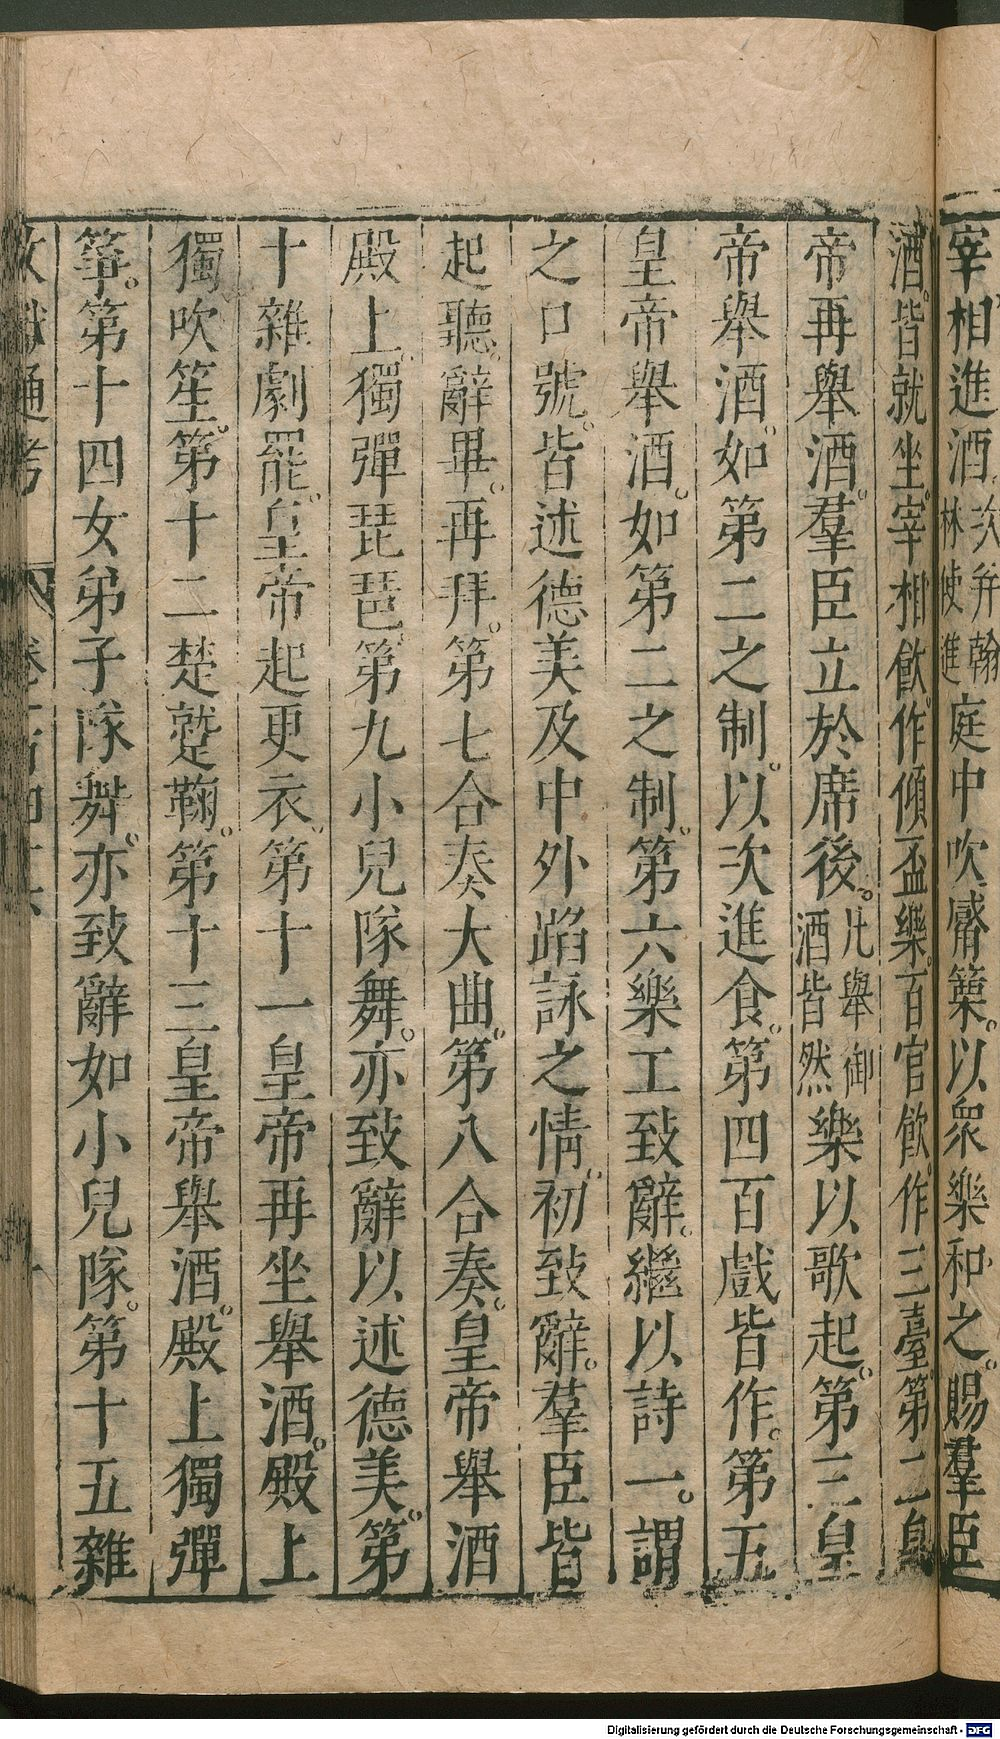 宰相進酒次并翰林使進庭中吹觱篥。以衆樂和之。賜羣臣
酒。皆就坐。宰相飲。作傾盃樂。百官飲。作三臺。第二皇
帝再舉酒。羣臣立於席後。凡舉御酒皆然樂以歌起。第三皇
帝舉酒。如第二之制。以次進食。第四百戲皆作。第五
皇帝舉酒。如第二之制。第六樂工致辭。繼以詩一。謂
之口號。皆述德美及中外蹈詠之情。初致辭。羣臣皆
起聽。辭畢。再拜。第七合奏大曲。第八合奏。皇帝舉酒
殿上。獨彈琵琶。第九小兒隊舞。亦致辭以述德美。第
十雜劇罷。皇帝起更衣。第十一皇帝再坐舉酒。殿上
獨吹笙。第十二楚蹵鞠。第十三皇帝舉酒。殿上獨彈
箏。第十四女弟子隊舞。亦致辭如小兒隊。第十五雜
通考
Digitalisierung gefördert durch die Deutsche Forschungsgemeinschaft - DFG